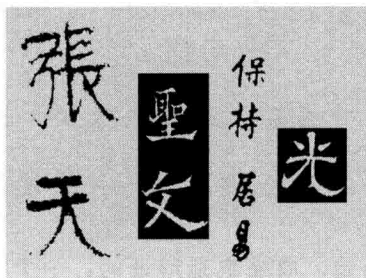 張天
聖文
保持居易
光